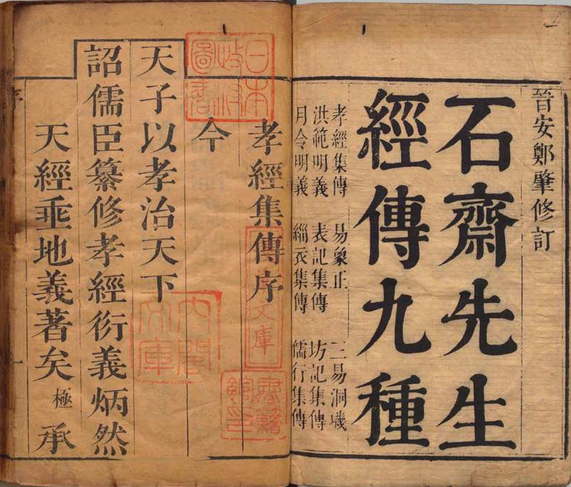 晉安鄭肇修訂
石齋先生
經傳九種
孝經集傳 易象正 三易洞璣
洪範明義 表記集傳 坊記集傳
月令明義 緇衣集傳 儒行集傳
孝經集傳序
今
天子以孝治天下
詔儒臣纂修孝經衍義炳然
天經垂地義著矣極承
序
一
日本政府圖書
內閣文庫
文庫